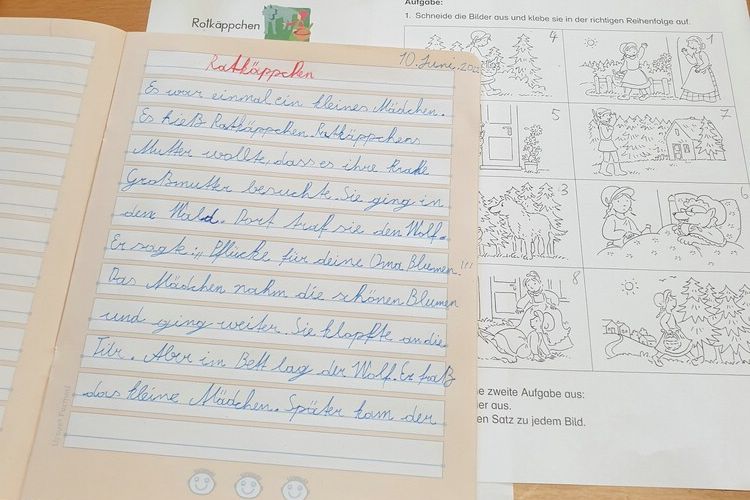 Aufgabe:
1. Schneide die Bilder aus und klebe sie in der richtigen Reihenfolge auf.
Rotkäppchen
10. Juni.
Ratkäppchen
Es war einmal ein kleines Mädchen.
Es hieß Ratkäppchen. Ratkäppchens
Mutter wollte, dass es ihre kranke
Großmutter besuchte. Sie ging in
den Wald. Dort traf sie den Wolf.
Er sagte: „Pflücke für deine Oma Blumen!!!
Das Mädchen nahm die schönen Blumen
und ging weiter. Sie klopfte an die
Tür. Aber im Bett lag der Wolf. Er fraß
das kleine Mädchen. Später kam der
4
1
5
7
3
6
8
e zweite Aufgabe aus:
er aus.
en Satz zu jedem Bild.